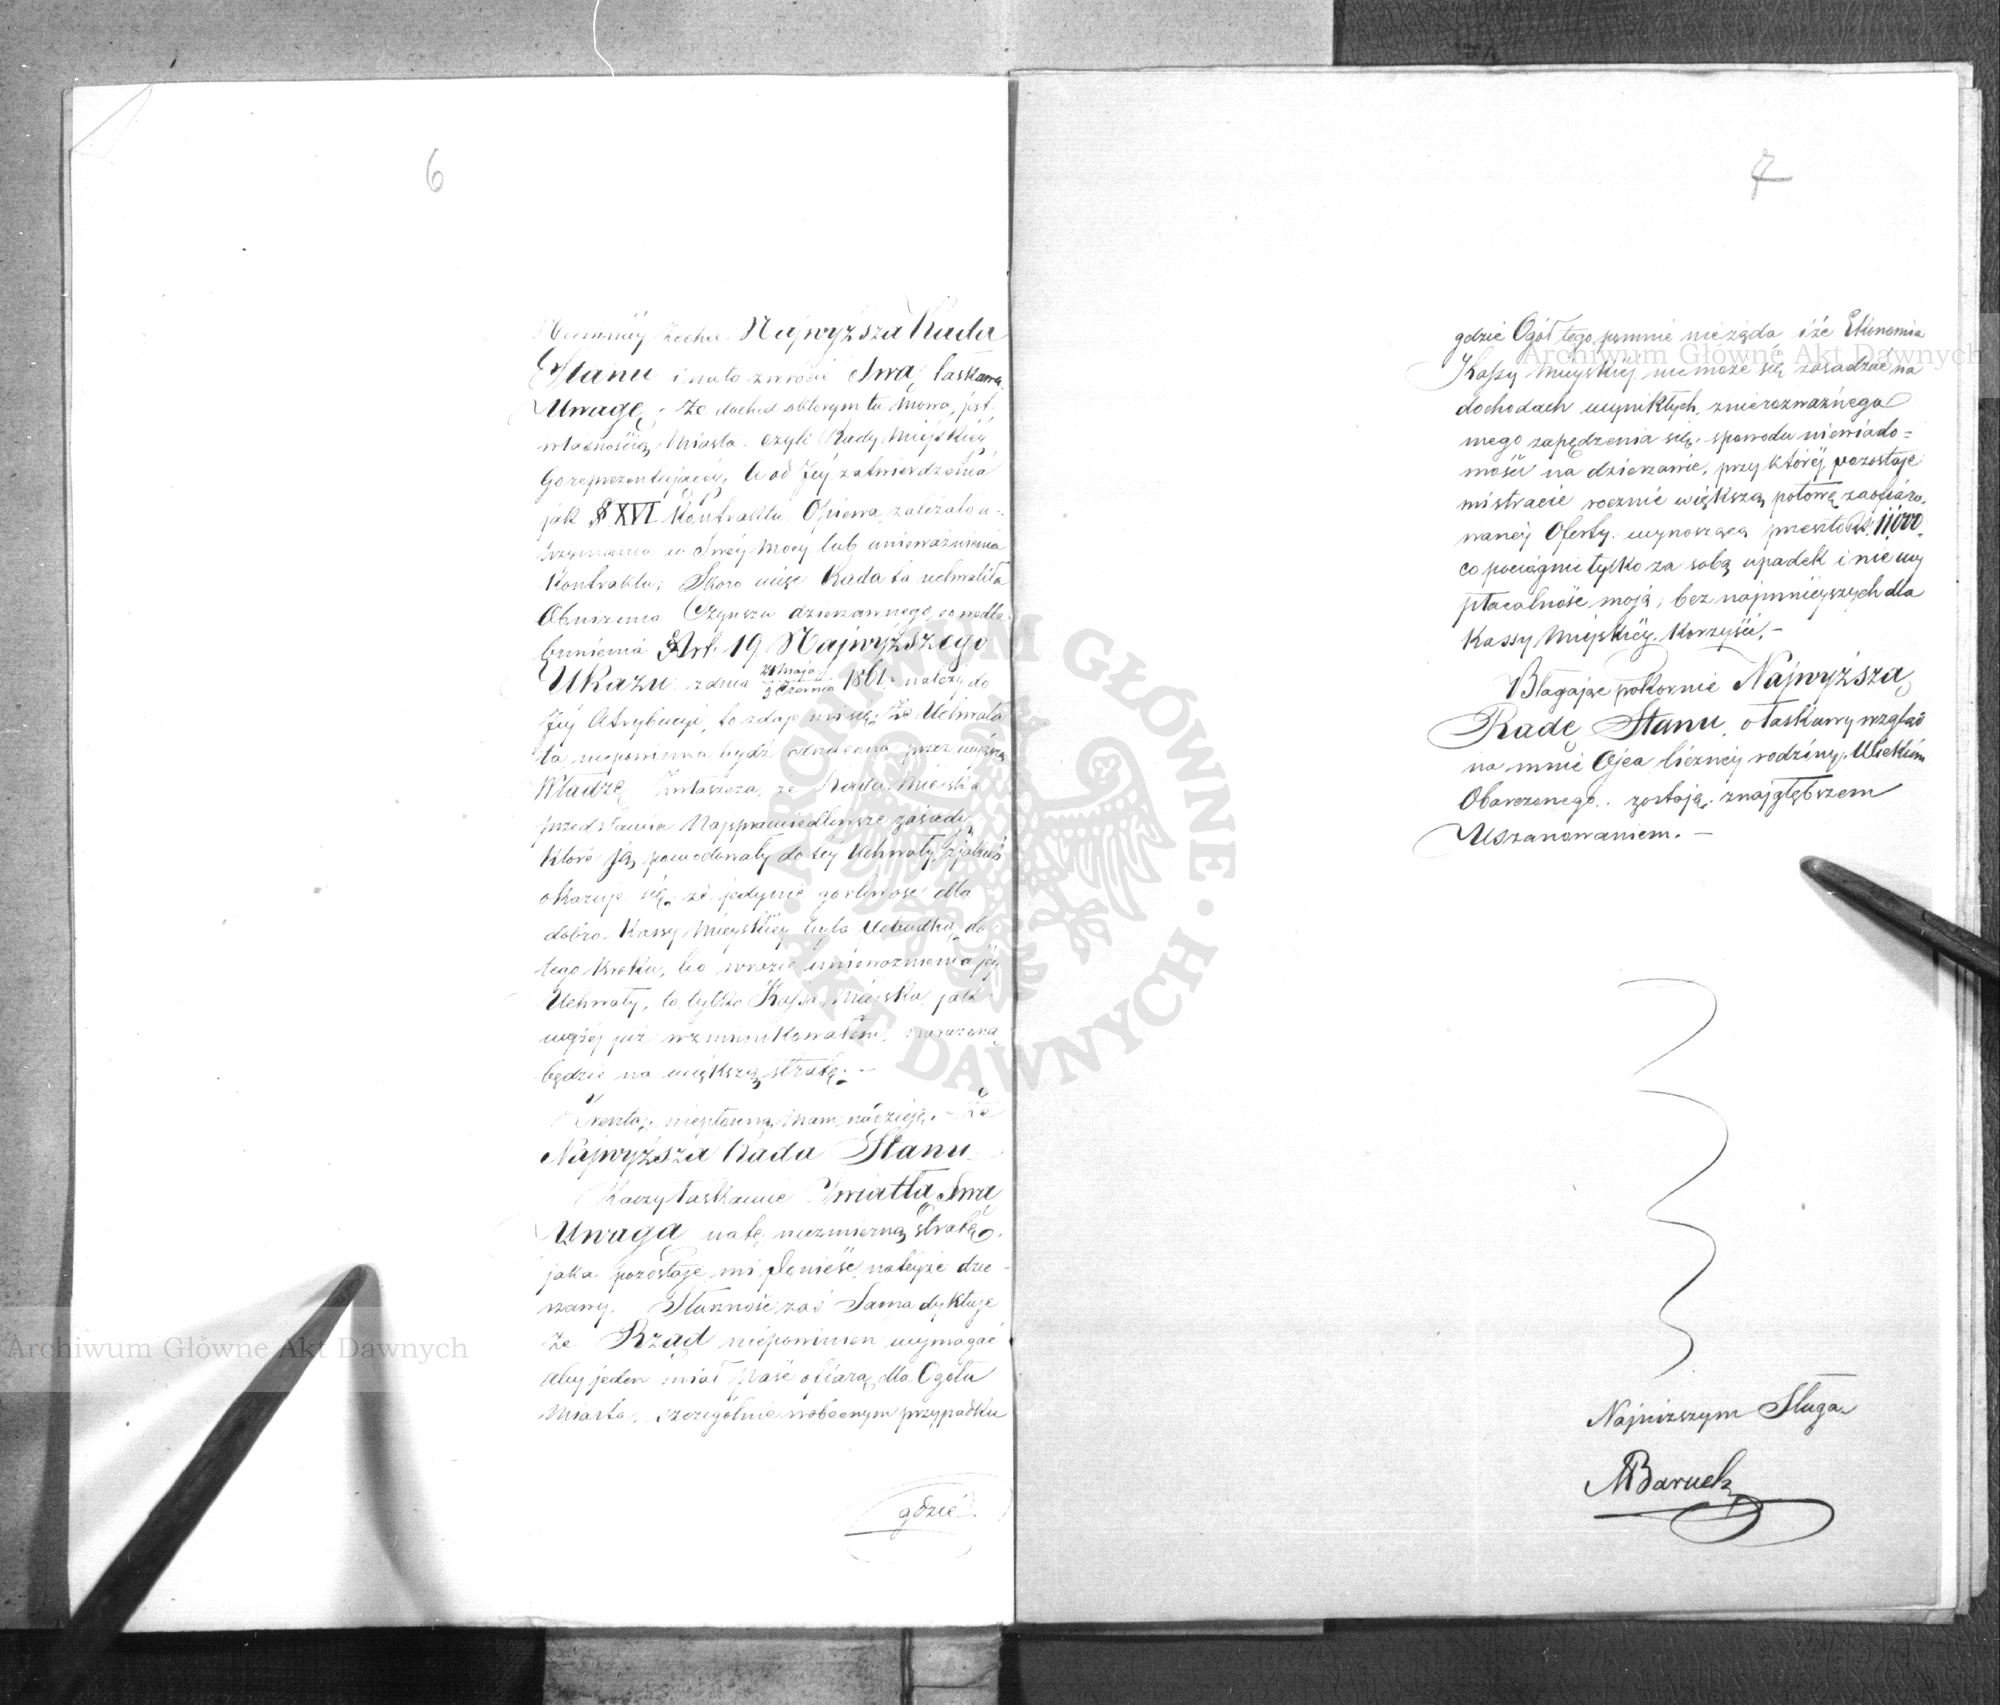 6
Niemniéj zechce Najwyższa Rada
Stanu i nato zwrócić Swą łaskawą
Uwagę, że dochód o którym tu mowa, jest
własnością Miasta czyli Rady Miejskiéj
Go reprezentującéj, a od Jéj zatwierdzenia
jak § XVI Kontraktu Opiewa, zależało u-
trzymanie w Swéj mocy lub unieważnienia
Kontraktu; Skoro więc Rada ta uchwaliła
Obniżenie Czynszu dzierżawnego, co wedle
brzmienia Art. 19 Najwyższego
Ukazu z dnia 24 Maja / 5 Czerwca 1861 r. należy do
Jéj Atrybucyi, to zdaje mi się, że Uchwała
ta niepowinna bydź odrzucona przez wyższą
Władzę, Zwłaszcza, że Rada Miejska
przedstawia Najsprawiedliwsze zasady,
które Ją powodowały do téj Uchwały, z jakich
okazuje się, że jedynie gorliwość dla
dobra Kassy Miejskiéj była pobudką do
tego kroku, bo w razie unieważnienia jéj
Uchwały, to tylko Kassa Miejska, jak
wyżéj już wzmiankowałem, narażoną
będzie na większą stratę. –
Zresztą, niepłonną mam nadzieję, – że
Najwyższa Rada Stanu
Raczy łaskawie Zwrócić Swą
Uwagę na tę niezmierną stratę,
jaka pozostaje mi ponieść na téjże dzier-
żawy. Słuszność zaś Sama dyktuje
że Rząd niepowinien wymagać
aby jeden miał paść ofiarą dla Ogółu
Miasta, szczególnie w obecnym przypadku
gdzie
7
gdzie Ogół tego pomnie nieżąda i że Ekonomia
Kassy Miejskiéj niemoże się zasadzać na
dochodach wynikłych z nierozważnego
mego zapędzenia się, spowodu niewiado-
mości na dzierżawie, przy któréj pozostaje
mi stracić rocznie większą połowę zaofiaro-
wanéj Oferty, wynoszącą przeszło Rs. 11,000
co pociągnie tylko za sobą upadek i niewy
płacalność moją, bez najmniejszych dla
Kassy Miejskiéj Korzyści. –
Błagając pokornie Najwyższą
Radę Stanu, o łaskawy wzgląd
na mnie Ojca licznéj rodziny, Wiekiem
Obarczonego, zostaję z najgłębszem
Uszanowaniem. –
Najniższym Sługą
M Baruch
ARCHIWUM GŁÓWNE
AKT DAWNYCH
Archiwum Główne Akt Dawnych
Archiwum Główne Akt Dawnych